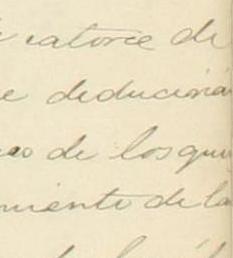 catorce de
e deducirán
de los qui
miento de la